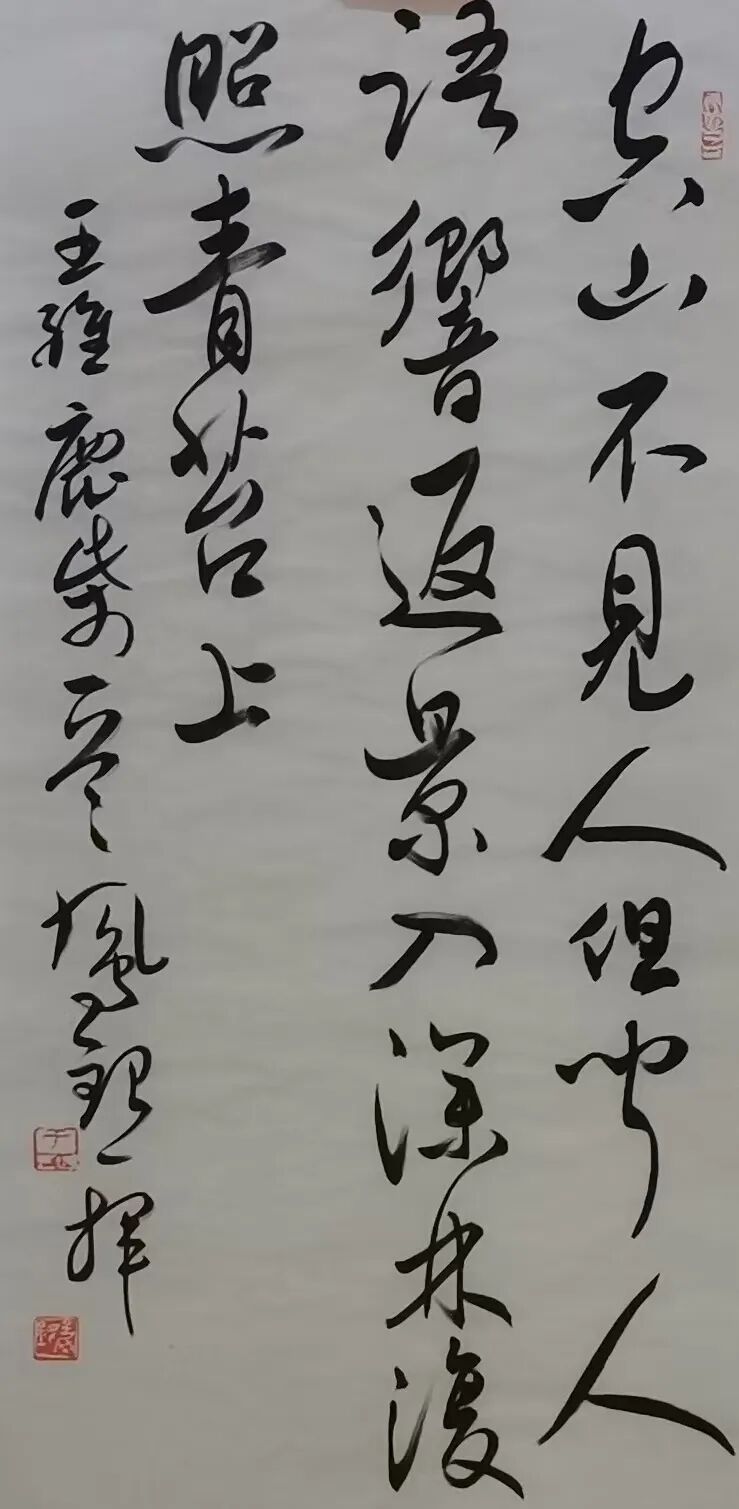 空山不見人但聞人
語響返景入深林復
照青苔上
王維鹿柴一首 鳳 揮